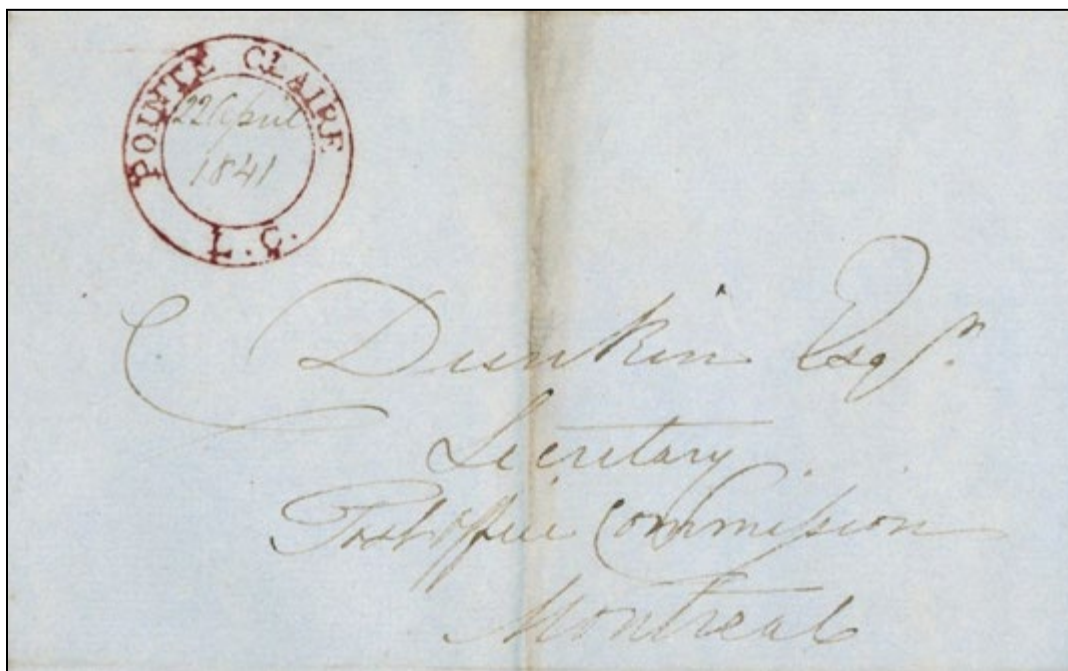 POINTE CLAIRE
22 April
1841
L.C.
C Dunkin Esqr.
Secretary
Post Office Commission
Montreal